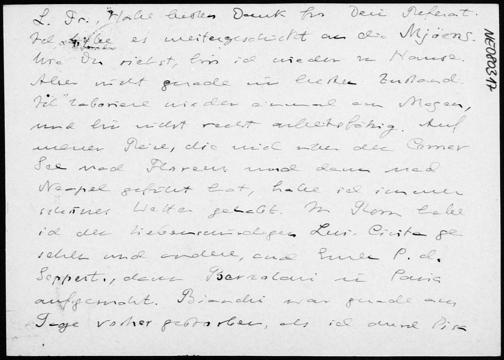 L. Fr., Habe besten Dank für Dein Referat.
Ich habe es weitergeschickt an die Mjöens.
Wie Du siehst, bin ich wieder zu Hause.
Aber nicht gerade im besten Zustand.
Ich laboriere wieder einmal am Magen,
und bin nicht recht arbeitsfähig. Auf
meiner Reise, die mich über den Comer
See nach Florenz und dann nach
Neapel geführt hat, habe ich immer
schönes Wetter gehabt. In Rom habe
ich den liebenswürdigen Levi-Civita ge
sehen und andere, auch P. d.
Seppert., dann Berzolari in Pavia
aufgesucht. Bianchi war gerade am
Tage vorher gestorben, als ich durch Pisa
NE080317